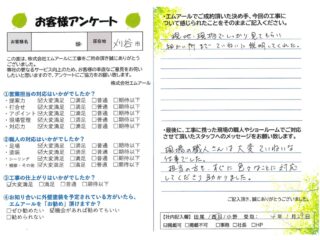 お客様アンケート
お客様名
様
居住地
刈谷市
この度は、株式会社エムアールに工事をご用命頂き誠にありがとう
ございました。
お客様アンケートにご協力をお願い致します。
株式会社エムアール
①営業担当の対応はいかがでしたか?
・提案力 ☑大変満足 □満足 □普通 □期待以下
・打合せ ☑大変満足 □満足 □普通 □期待以下
・アポイント ☑大変満足 □満足 □普通 □期待以下
・現場管理 ☑大変満足 □満足 □普通 □期待以下
・対応力 ☑大変満足 □満足 □普通 □期待以下
②職人の対応はいかがでしたか?
・足場 ☑大変満足 □満足 □普通 □期待以下
・塗装 ☑大変満足 □満足 □普通 □期待以下
・シーリング □大変満足 □満足 □普通 □期待以下
③工事の仕上がりはいかがでしたか?
☑大変満足 □満足 □普通 □期待以下
④お知り合いに外壁塗装を予定されている方がいたら、
エムアールを「お勧め」頂けますか?
□ぜひ勧めたい ☑機会があれば勧めてもいい
□勧められない
・エムアールでご成約頂いた決め手、今回の工事に
ついて感じられたことをそのままご記入ください。
現地・現物でしっかり見てもらい
細かな所までていねいに説明してくれた。
・最後に、工事に携った現場の職人やショールームでご対応
させて頂いたスタッフへのメッセージをお願い致します。
現場の職人さんは大変ていねいな
仕事でした。
担当の方も、すぐに色々なことに対応
してくださり助かりました。
ご記入頂き、誠にありがとうございました。